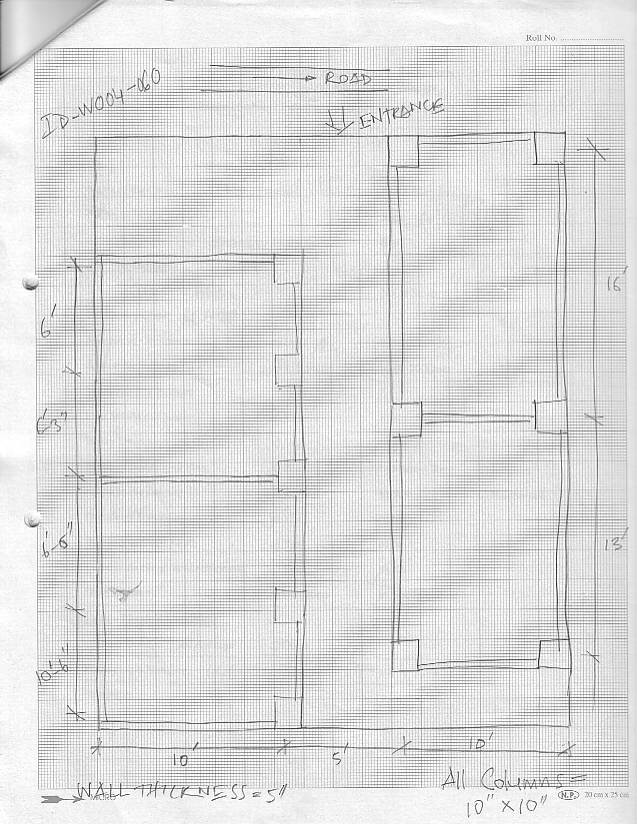 Roll No.
ROAD
ID-W004-060
ENTRANCE
16'
6'
6'-3"
6'-6"
13'
10'-6"
10'
5'
10'
WALL THICKNESS = 5"
All Columns =
10" X 10"
MICRO
N.P. 20 cm x 25 cm